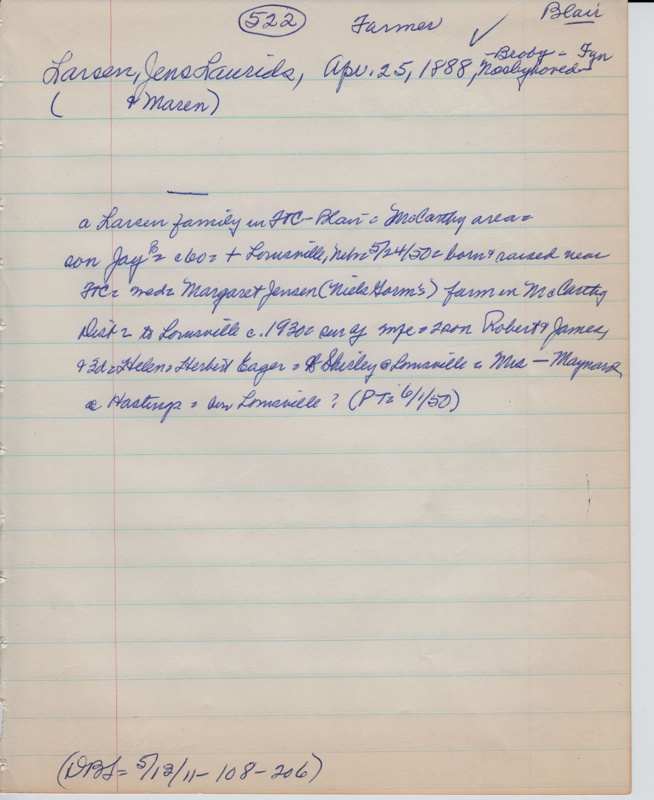 522 Farmer ✓ Blair
Larsen, Jens Laurids, Apr. 25, 1888, Nosbyhoved - Broby - Fyn
( & Maren)
a Larsen family in FtC - Blair = McCarthy area =
son Jay = c60 = + Louisville, Neb = 5/24/50 = born & raised near
FtC = md = Margaret Jensen (Niels Gorm's) farm in McCarthy
Dist = to Louisville c. 1930 = sur by wife = 2 son Robert & James,
& 3d = Helen = Herbert Eager = Shirley @ Louisville = Mrs — Maynard
@ Hastings = bur Louisville? (PT = 6/1/50)
(DBL = 5/13/11 - 108 - 206)